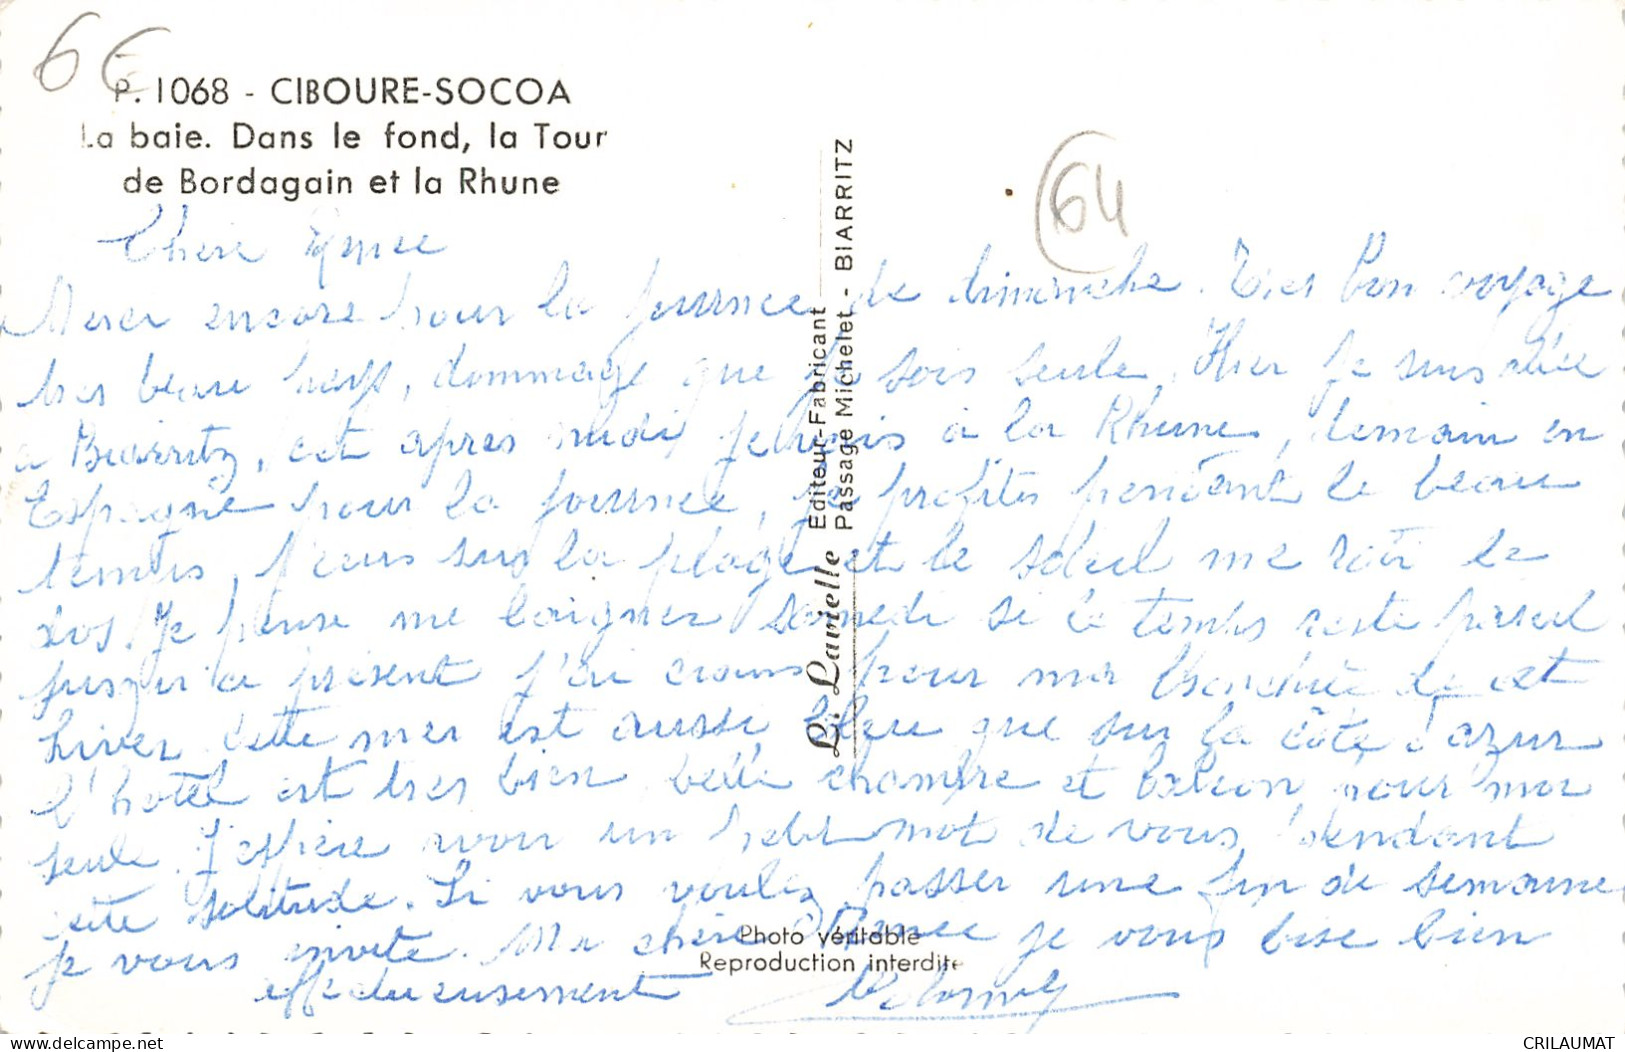 6€
P. 1068 - CIBOURE-SOCOA
La baie. Dans le fond, la Tour
de Bordagain et la Rhune
64
Chère
Merci encore pour la journee de dimanche. Tres bon voyage
tres beau pays, dommage que je sois seule, Hier je suis allée
a Biarritz, cet apres midi je vais à la Rhune, demain en
Espagne pour la journee, je profites pendant le beau
temps, je suis sur la plage et le soleil me roti le
dos. Je pense me baigner samedi si le temps reste pareil
jusqu'a présent j'ai crains pour ma bronchite de cet
hiver. Cette mer est aussi bleu que sur la côte d'azur
l'hotel est tres bien belle chambre et balcon pour moi
seule. J'espère avoir un petit mot de vous pendant
cette solitude. Si vous voulez passer une fin de semaine
je vous invite. Ma chère je vous bise bien
affectueusement
L. Lavielle Editeur-Fabricant
Passage Michelet - BIARRITZ
Photo véritable
Reproduction interdite
delcampe.net
CRILAUMAT